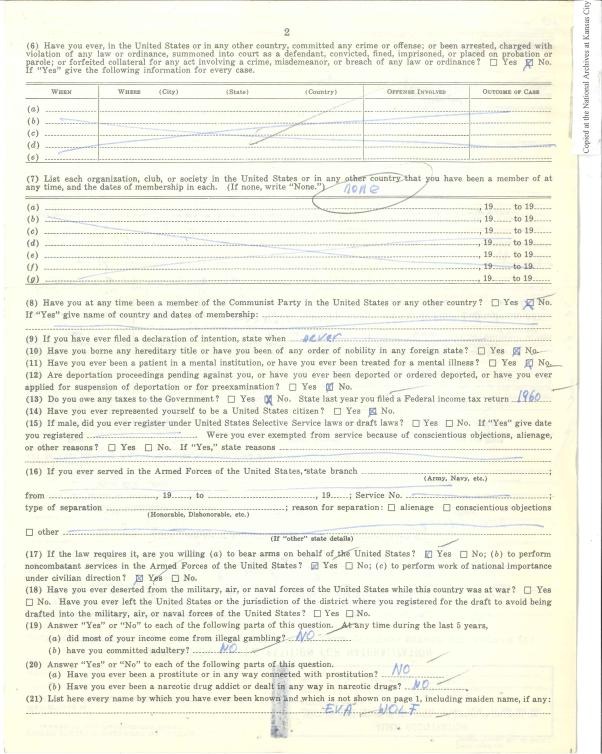 2
(6) Have you ever, in the United States or in any other country, committed any crime or offense; or been arrested, charged with
violation of any law or ordinance, summoned into court as a defendant, convicted, fined, imprisoned, or placed on probation or
parole; or forfeited collateral for any act involving a crime, misdemeanor, or breach of any law or ordinance? ☐ Yes ☒ No.
If "Yes" give the following information for every case.
WHEN WHERE (City) (State) (Country) OFFENSE INVOLVED OUTCOME OF CASE
(a)
(b)
(c)
(d)
(e)
(7) List each organization, club, or society in the United States or in any other country that you have been a member of at
any time, and the dates of membership in each. (If none, write "None.") none
(a) , 19 to 19
(b) , 19 to 19
(c) , 19 to 19
(d) , 19 to 19
(e) , 19 to 19
(f) , 19 to 19
(g) , 19 to 19
(8) Have you at any time been a member of the Communist Party in the United States or any other country? ☐ Yes ☒ No.
If "Yes" give name of country and dates of membership:
(9) If you have ever filed a declaration of intention, state when never
(10) Have you borne any hereditary title or have you been of any order of nobility in any foreign state? ☐ Yes ☒ No.
(11) Have you ever been a patient in a mental institution, or have you ever been treated for a mental illness? ☐ Yes ☒ No.
(12) Are deportation proceedings pending against you, or have you ever been deported or ordered deported, or have you ever
applied for suspension of deportation or for preexamination? ☐ Yes ☒ No.
(13) Do you owe any taxes to the Government? ☐ Yes ☒ No. State last year you filed a Federal income tax return 1960
(14) Have you ever represented yourself to be a United States citizen? ☐ Yes ☒ No.
(15) If male, did you ever register under United States Selective Service laws or draft laws? ☐ Yes ☐ No. If "Yes" give date
you registered Were you ever exempted from service because of conscientious objections, alienage,
or other reasons? ☐ Yes ☐ No. If "Yes," state reasons
(16) If you ever served in the Armed Forces of the United States, state branch ;
(Army, Navy, etc.)
from , 19 , to , 19 ; Service No.
type of separation ; reason for separation: ☐ alienage ☐ conscientious objections
(Honorable, Dishonorable, etc.)
☐ other
(If "other" state details)
(17) If the law requires it, are you willing (a) to bear arms on behalf of the United States? ☒ Yes ☐ No; (b) to perform
noncombatant services in the Armed Forces of the United States? ☒ Yes ☐ No; (c) to perform work of national importance
under civilian direction? ☒ Yes ☐ No.
(18) Have you ever deserted from the military, air, or naval forces of the United States while this country was at war? ☐ Yes
☐ No. Have you ever left the United States or the jurisdiction of the district where you registered for the draft to avoid being
drafted into the military, air, or naval forces of the United States? ☐ Yes ☐ No.
(19) Answer "Yes" or "No" to each of the following parts of this question. At any time during the last 5 years,
(a) did most of your income come from illegal gambling? NO
(b) have you committed adultery? NO
(20) Answer "Yes" or "No" to each of the following parts of this question.
(a) Have you ever been a prostitute or in any way connected with prostitution? NO
(b) Have you ever been a narcotic drug addict or dealt in any way in narcotic drugs? NO
(21) List here every name by which you have ever been known and which is not shown on page 1, including maiden name, if any:
EVA WOLF
Copied at the National Archives at Kansas City